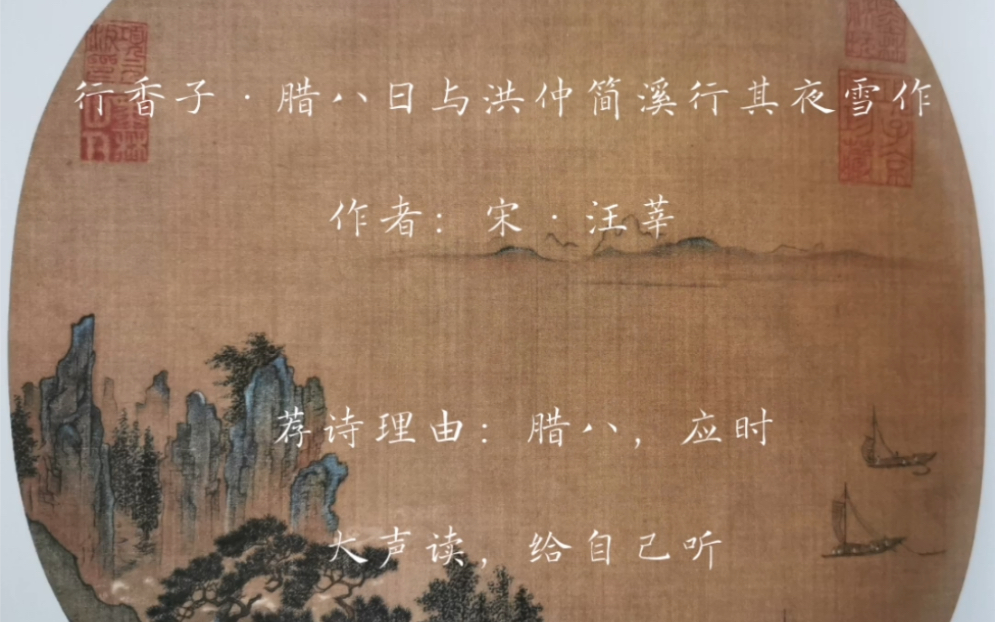 行香子·腊八日与洪仲简溪行其夜雪作
作者：宋·汪莘
荐诗理由：腊八，应时
大声读，给自己听